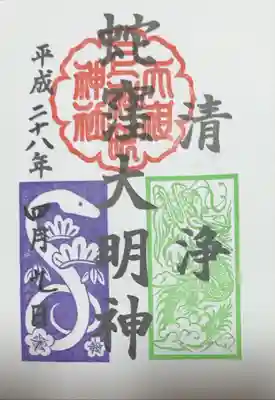 清浄
蛇窪大明神
天祖
神社
平成二十八年四月九日